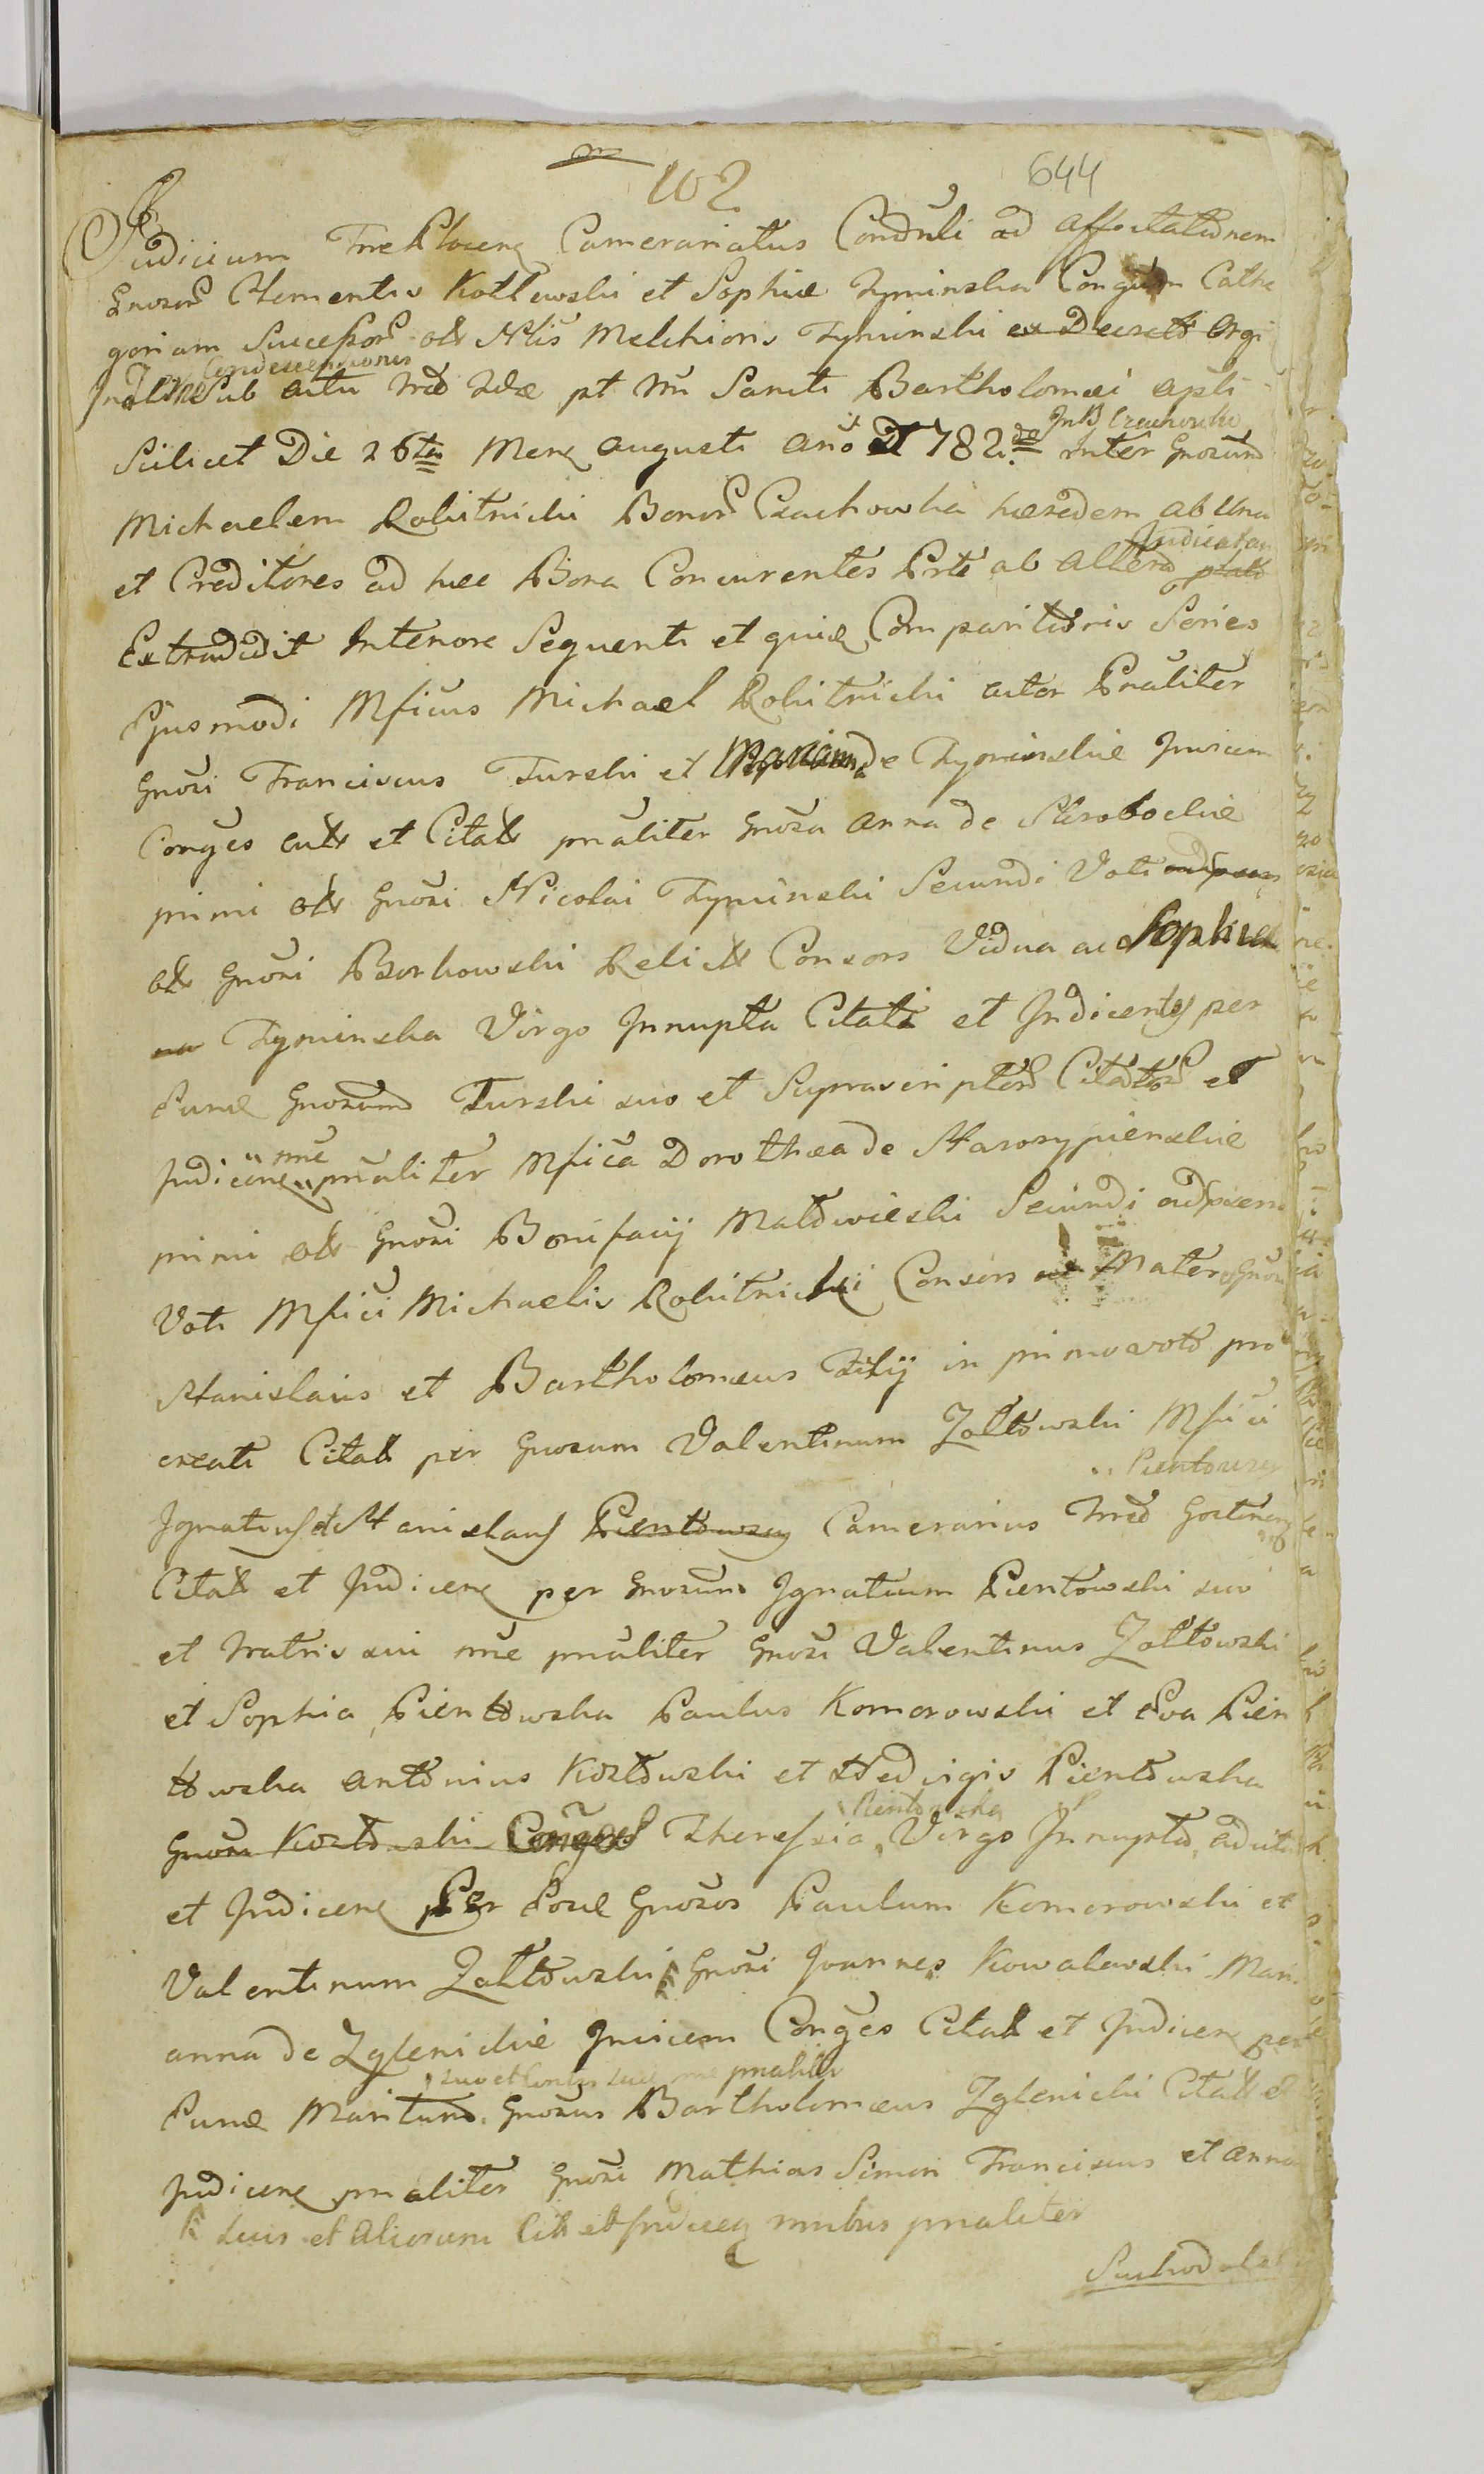 102
644
Judicium Trre Plocen Camerariatus Condnli ad affectationem
Gnosor Clementis Kotlewski et Sophiæ Zyminska Congum Cathe
goriam Successor olr Nlis Melchioris Zyminski ex Decreto Orgi
Condescensionis
nali Sub actu pt Sancti Bartholomæi apli
Scilicet Die 26ta Mens augusti ano 1782do inter Gnosum
In B Czachowko
Michaelem Rokitnicki Bonor Czachowka hæredem ab Una
et Creditores ad hæc Bona Concurentes Prte ab altera
Judicatam
Extradidit Intenore Sequenti et quiæ Comparitionis Series
Ejusmodi Mficus Michael Rokitnicki actor Pnaliter
Gnosi Franciscus Turski et Marianna de Zyminskie Invicem
Conges et Citat pnaliter Gnosa Anna de
primi olr Gnosi Nicolai Zyminski Secundi Voti
olr Gnosi Borkowski Relicta Consors Vidua ac Sophia
Zyminska Virgo Innupta Citati et Indicentes per
Eund Gnosum Turski suo et Suprascriptor Citator et
Indicen nne pnaliter Mfica Dorothea de Starorypienskie
primi olr Gnosi Bonifacij Matowieski Secundi adpræns
Voti Mfici Michaelis Rokitnicki Consors Mater Gnosi
Stanislaus et Bartholomæus Filij in primo voto pro
creati Citat per Gnosum Valentinum Zołtowski Mfici
Pientowscy
Ignatius et Stanislaus Pientowscy Camerarius Gostinen
Citat et Indicen per Gnosum Ignatium Pientowski suo
et Fratris sui nne pnaliter Gnosi Valentinus Zołtowski
et Sophia Pientowska Paulus Komorowski et Eva Pien
towska Antonius Kozłowski et Hedvigis Pientowska
Gnosi Kozłowski Conges Theressia Pientowska Virgo Innupta
et Indicen Per Eosd Gnosos Paulum Komorowski et
Valentinum Zołtowski Gnosi Joannes Kowalewski Mari
anna de Zglenickie Invicem Conges Citat et Indicen per
suo et Contis suæ nne pnaliter
Eund Maritum Gnosus Bartholomæus Zglenicki Citat et
Indicen pnaliter Gnosi Mathias Simon Franciscus et Anna
suis et aliorum Cit et Indicen nnibus pnaliter